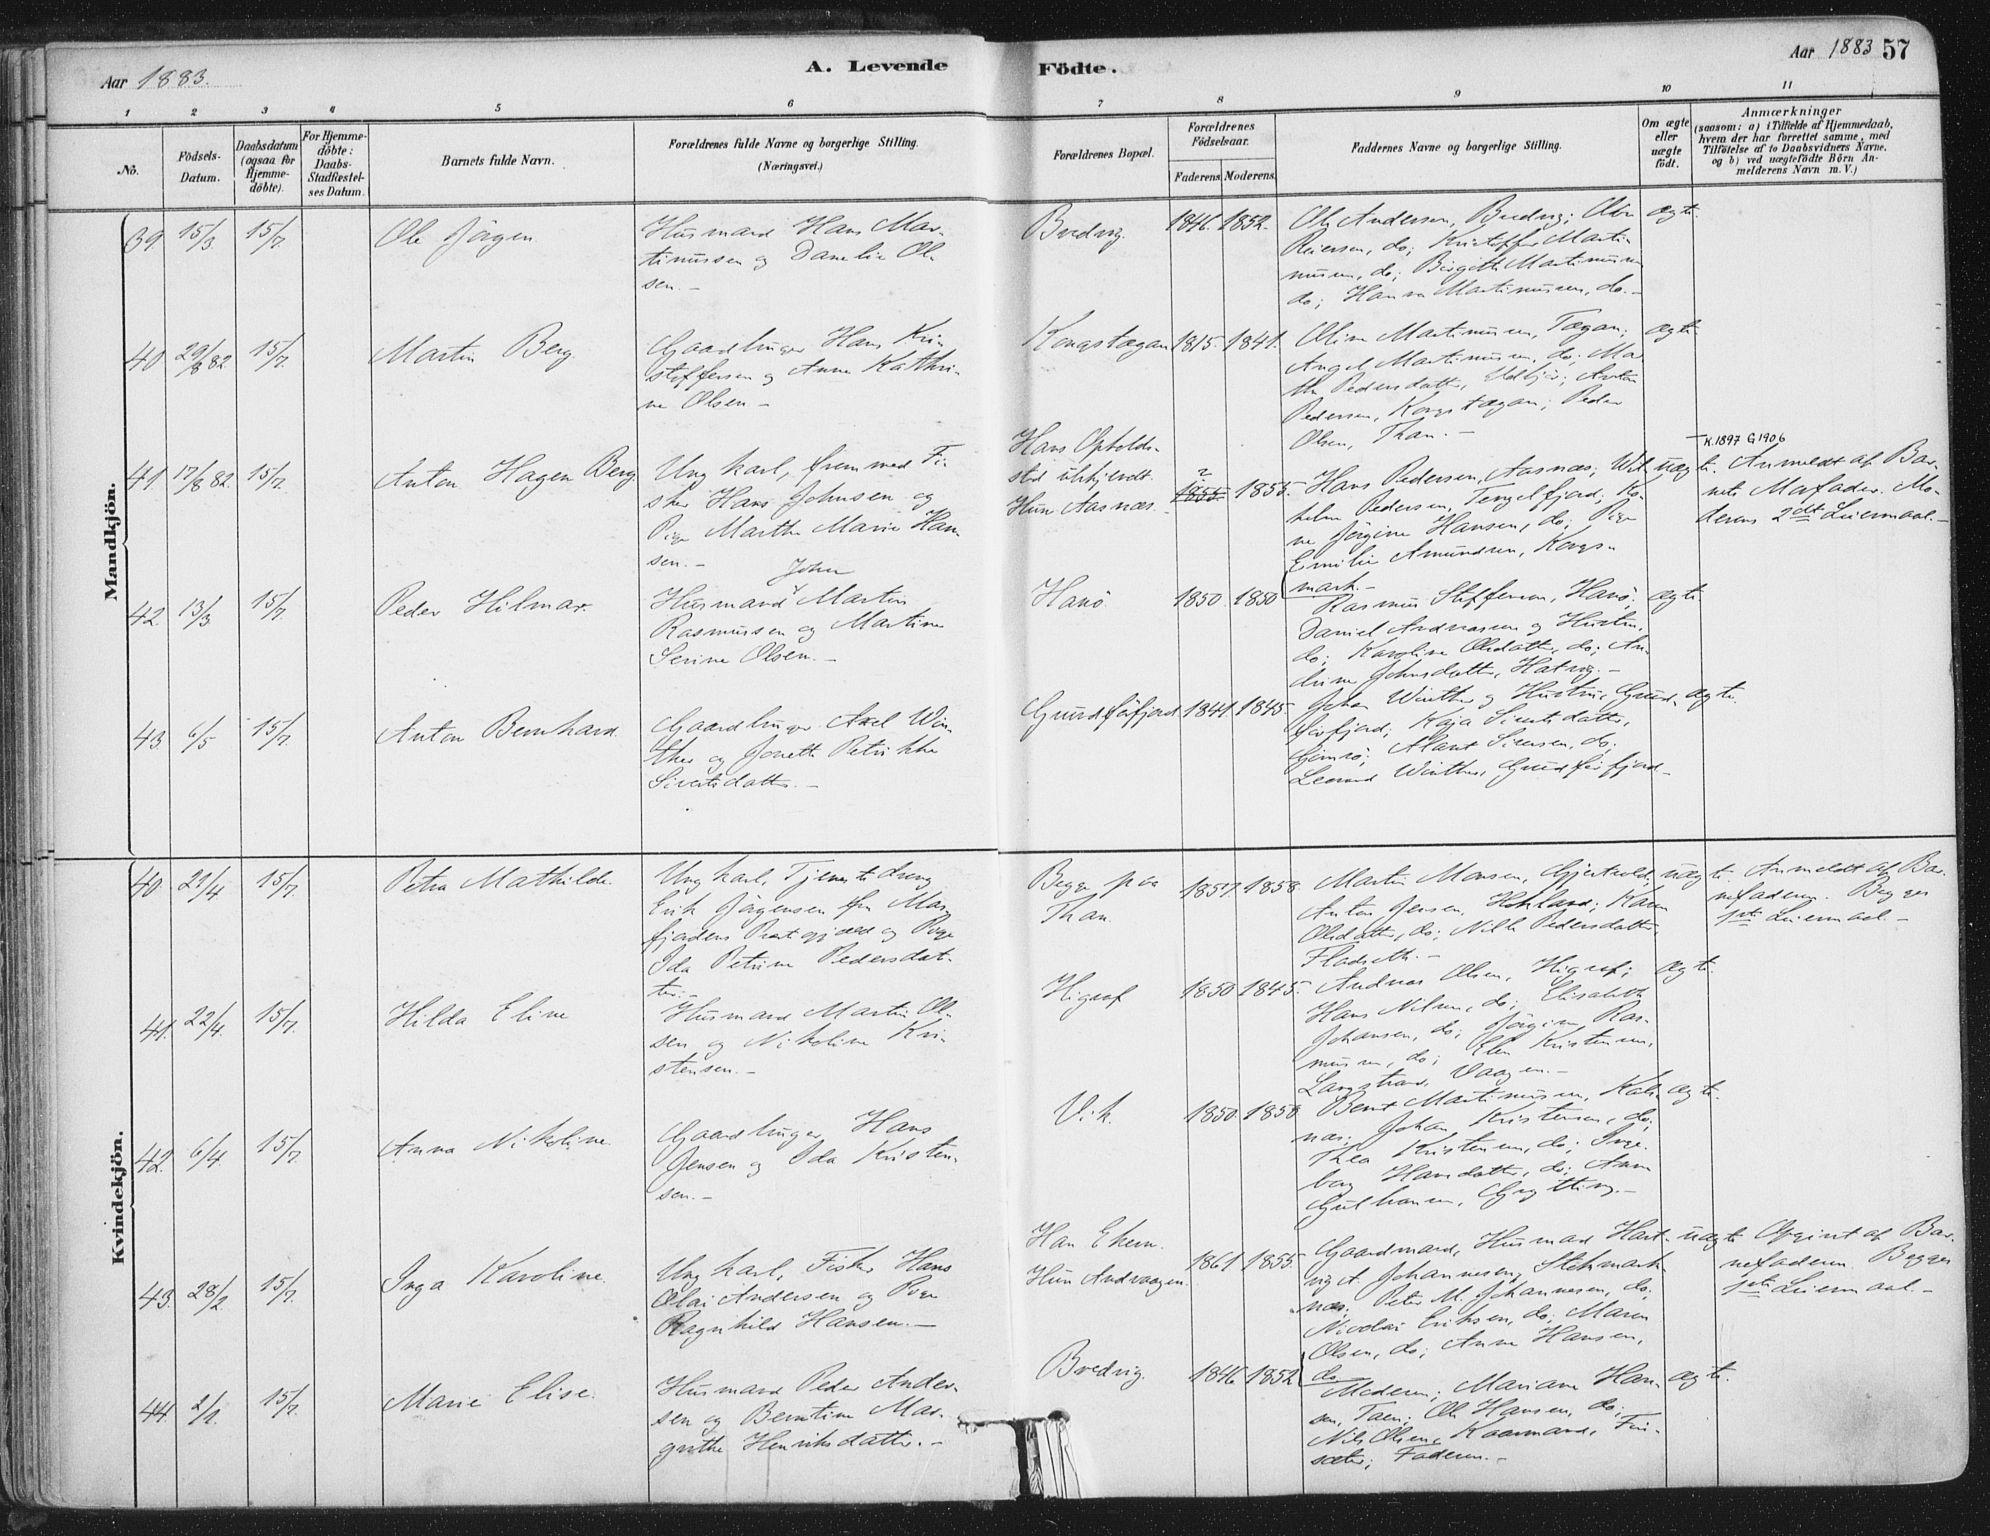 Aar 1883.
A. Levende
Födte.
Aar 1883 57
1 2 3 4 5 6 7 8 9 10 11
No.
Födsels-
Datum.
Daabsdatum
(ogsaa for
Hjemme-
döbte).
For Hjemme-
döbte:
Daabs-
Stadfæstel-
ses Datum.
Barnets fulde Navn.
Forældrenes fulde Navne og borgerlige Stilling.
(Næringsvei.)
Forældrenes Bopæl.
Forældrenes
Födselsaar.
Faderens. Moderens.
Faddernes Navne og borgerlige Stilling.
Om ægte
eller
uægte
födt.
Anmærkninger
(saasom: a) i Tilfælde af Hjemmedaab,
hvem der har forrettet samme, med
Tilföielse af to Daabsvidners Navne,
og b) ved uægtefödte Börn An-
melderens Navn m. V.)
Mandkjön.
39. 15/3 15/7. Ole Jörgen
Husmand Hans Mar-
tinussen og Danelie Ol-
sen.-
Bredvig. 1846. 1852.
Ole Andersen, Bredvig;
Reiersen, do; Kristoffer Marti-
nusen, do; Birgitte Martinussen
do; Hanna Martinussen, do.-
ægte.
40 29/8 82 15/7. Martin Berg.
Gaardbruger Hans Kri-
stoffersen og Anne Kathri-
ne Olsen -
Kongstægan 1815. 1841.
Oline Martinussen, Tægan;
Angel Martinussen, do; Mar
the Pedersdatter, Anton
Pedersen, Kongstægan; Peder
Olsen, Than.-
ægte
41 17/8 82. 15/7. Anton Hagen Berg.
Ung karl, fremmed Fi-
sker Hans Johnsen og
Pige Marthe Marie Han
sen.-
Hans Opholds-
sted ubekjendt.
Hun Aasnæs.
? 1855. 1855.
Hans Pedersen, Aasnæs; Wil
helm Pedersen, Tengelfjord; Ko-
ne Jörgine Hansen, do; Pige
Emilie Amundsen, Kongs-
mark.-
uægte.
K.1897 G1906
Anmeldt af Bar-
nets Morfader. Mo-
derens 2det Leiermaal.-
42. 13/3 15/7. Peder Hilmar.
John
Husmand Martin
Rasmussen og Martine
Serine Olsen.-
Hanö. 1850. 1850
Rasmus Steffensen, Hanö;
Daniel Andreassen og Hustru,
do; Karoline Olsdatter, do; An-
drine Johnsdatter, Hatvig.-
ægte.
43. 6/5 15/7. Anton Bernhard.
Gaardbruger Axel Win
ther og Jonette Petrikke
Sivertsdatter.-
Grundförfjord 1841. 1845.
Johan Winther og Hustru, Grund-
förfjord; Kaja Sivertsdatter,
Gimsö; Sivertsen, do;
Leonard Winther, Grundförfjord-
ægte.
Kvindekjön.
40. 21/4 15/7. Petra Mathilde.
Ung karl, Tjenestedreng
Erik Jörgensen fra
fjordens Præstegjeld og Pige
Ida Petrine Pedersdat-
ter.-
Begge paa
Than.
1857. 1858.
Martin Monsen, Gjerstad;
Anton Jensen, Karen
Olsdatter, do; Pedersdatter,
Fladseth.-
uægte. Anmeldt af Bar-
nefaderen. Begges
1ste Leiermaal.-
41. 22/4. 15/7. Hilda Eline
Husmand Martin Ol-
sen og Nikoline Kri-
stensen.-
Higraf 1850 1845.
Andreas Olsen, Higraf;
Hans Nilsen, do; Elisabeth
Johansen, do; Jörgine Ras-
musen, do; Elen Kristensen,
Langstrand, Vaagen.-
ægte.
42. 6/4. 15/7. Anna Nikoline.
Gaardbruger Hans
Jensen og Ida Kristen-
sen.-
Vik. 1850. 1850.
Bernt Martinussen, Kal-
næs; Johan Kristensen, do;
Thea Kristensen, do; Inge-
borg Hansdatter, do; Anne
Gulbransen, Grytting.-
ægte.
43. 28/2. 15/7. Inga Karoline.
Ung karl, Fisker Hans
Olai Andersen og Pige
Ragnhild Hansen.-
Han Ekern.
Hun Andvaagen.
1861 1855.
Gaardmand, Husmand Hart-
vig A. Johannesen, Stokmark-
næs; Peter M. Johannesen, do;
Nicolai Eriksen, do; Maren
Olsen, do; Anne Hansen,
do
uægte Opgivet af Bar-
nefaderen. Begges
1ste Leiermaal.-
44. 2/1. 15/7. Marie Elise.
Husmand Peder Ander-
sen og Berntine Mar-
grethe Henriksdatter.-
Bredvig. 1846. 1852
Moderen; Mariane Han-
sen, Taen; Ole Hansen, do;
Nils Olsen, Kaarmand,
sæter; Faderen.-
ægte.